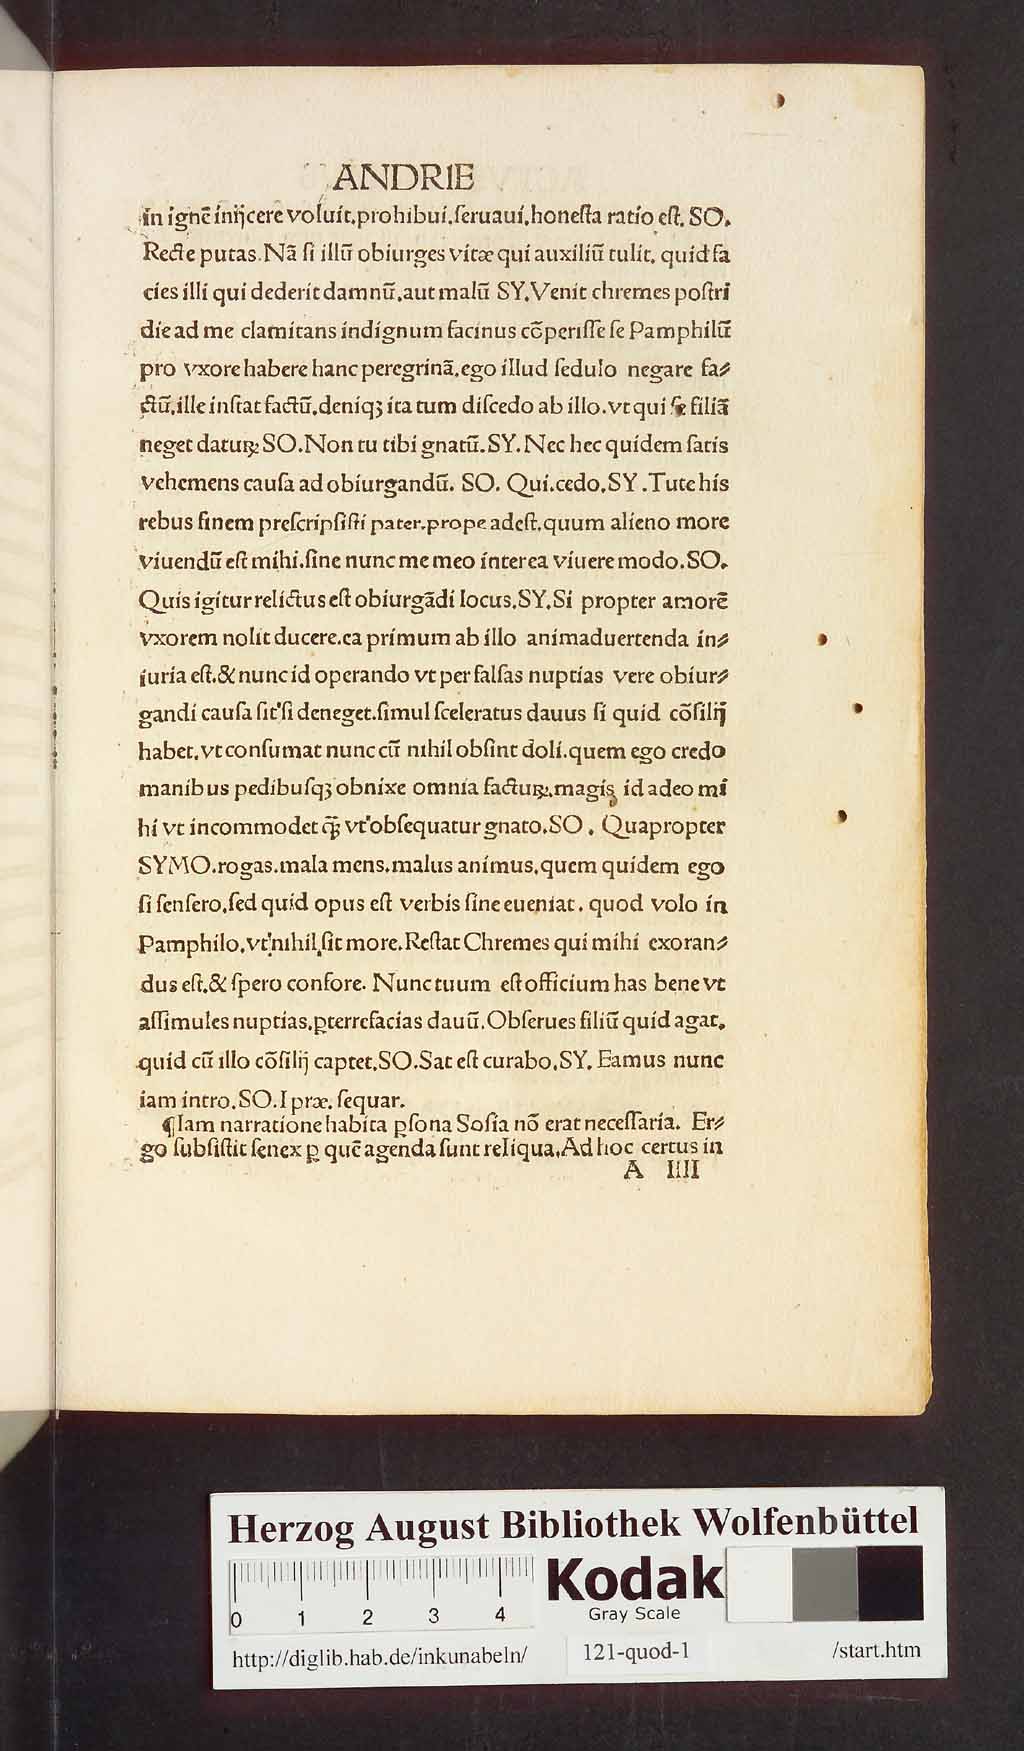 ANDRIE
in ignē inijcere voluit.prohibui.ſeruaui.honeſta ratio eſt. SO.
Recte putas. Nā ſi illū obiurges vitæ qui auxiliū tulit. quid fa
cies illi qui dederit damnū.aut malū SY.Venit chremes poſtri
die ad me clamitans indignum facinus cōperiſſe ſe Pamphilū
pro vxore habere hanc peregrinā.ego illud ſedulo negare fa⸗
ctū.ille inſtat factū.deniqꝫ ita tum diſcedo ab illo.vt qui ſe filiā
neget datuꝝ SO.Non tu tibi gnatū.SY.Nec hec quidem ſatis
vehemens cauſa ad obiurgandū. SO. Qui.cedo.SY.Tute his
rebus finem preſcripſiſti pater.prope adeſt.quum alieno more
viuendū eſt mihi.ſine nunc me meo interea viuere modo.SO.
Quis igitur relictus eſt obiurgādi locus.SY.Si propter amorē
vxorem nolit ducere.ea primum ab illo animaduertenda in⸗
iuria eſt.& nunc id operando vt per falſas nuptias vere obiur⸗
gandi cauſa ſit'ſi deneget.ſimul ſceleratus dauus ſi quid cōſilij
habet.vt conſumat nunc cū nihil obſint doli.quem ego credo
manibus pedibuſqꝫ obnixe omnia factuꝝ.magis id adeo mi
hi vt incommodet q̄ꝫ vt'obſequatur gnato.SO. Quapropter
SYMO.rogas.mala mens.malus animus.quem quidem ego
ſi ſenſero.ſed quid opus eſt verbis ſine eueniat. quod volo in
Pamphilo.vt'nihil ſit more.Reſtat Chremes qui mihi exoran⸗
dus eſt.& ſpero confore. Nunc tuum eſt officium has bene vt
aſſimules nuptias.ꝑterrefacias dauū.Obſerues filiū quid agat.
quid cū illo cōſilij captet.SO.Sat eſt curabo.SY. Eamus nunc
iam intro.SO.I præ. ſequar.
¶Iam narratione habita ꝑſona Soſia nō erat neceſſaria. Er⸗
go ſubſiſtit ſenex ꝑ quē agenda ſunt reliqua.Ad hoc certus in
A IIII
Herzog August Bibliothek Wolfenbüttel
0 1 2 3 4
Kodak
Gray Scale
http://diglib.hab.de/inkunabeln/ 121-quod-1 /start.htm